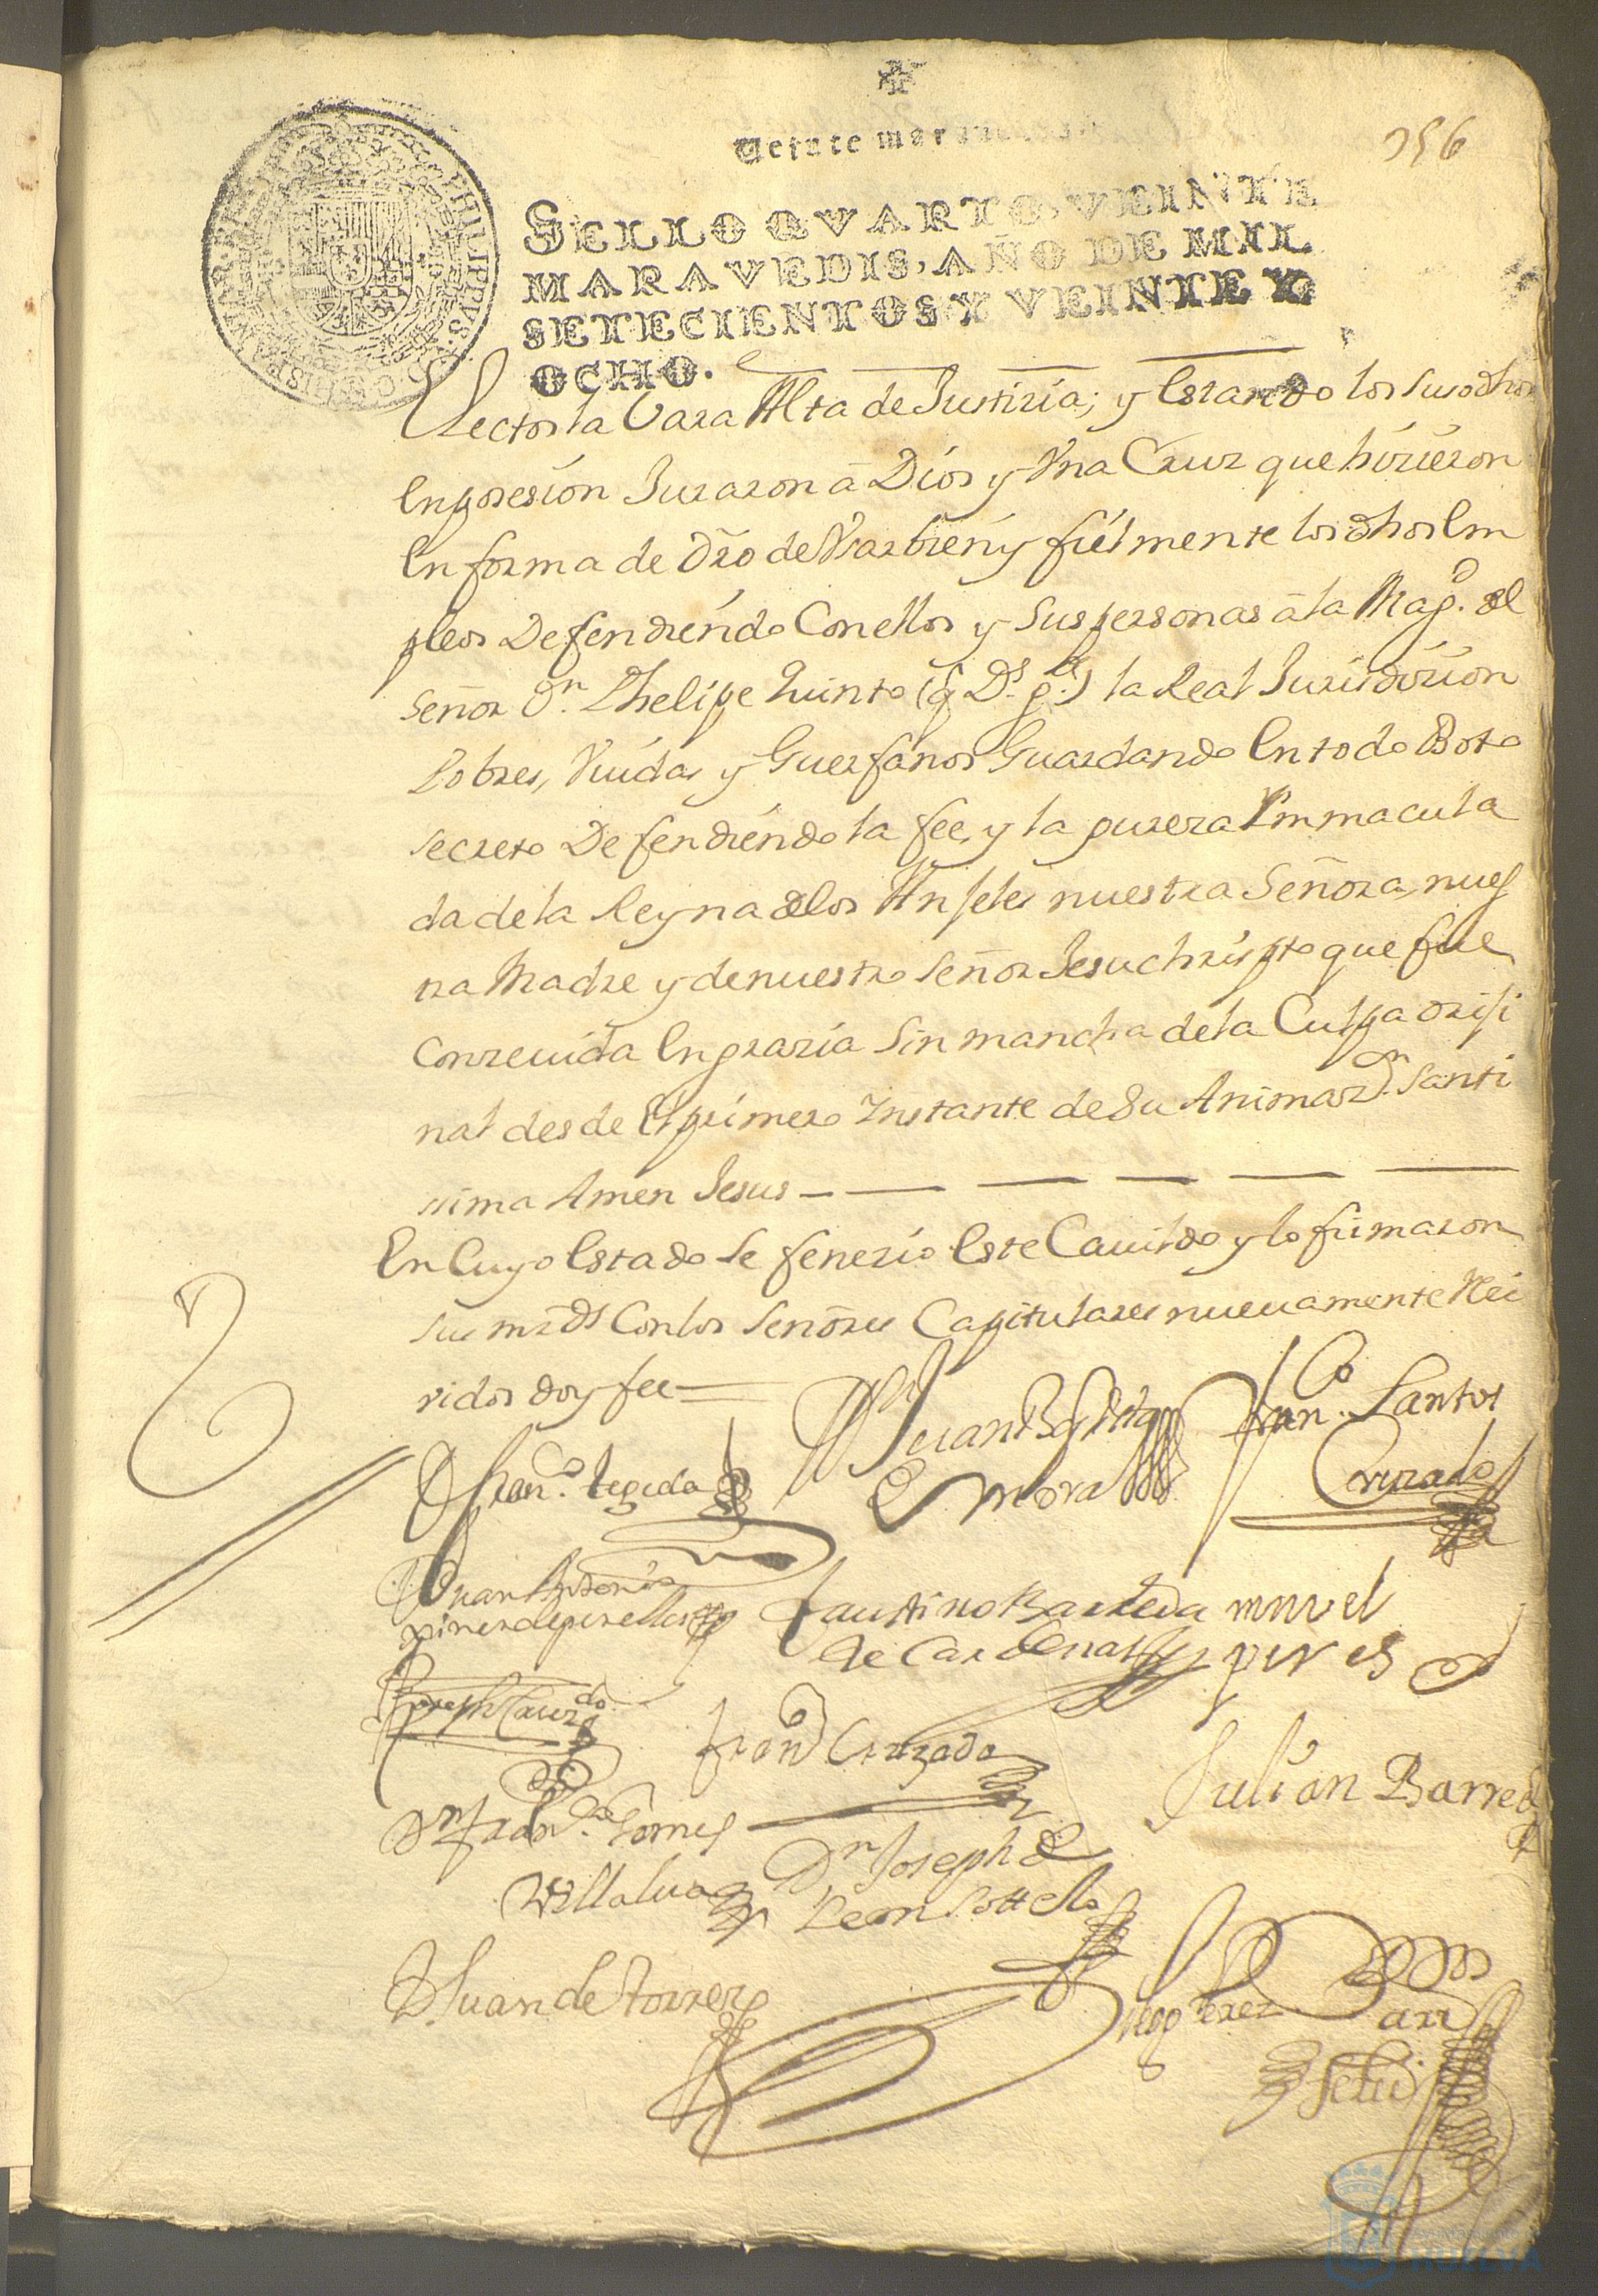 Veinte marauedis
156
SELLO QVARTO, VEINTE
MARAVEDIS, AÑO DE MIL
SETECIENTOS Y VEINTE Y
OCHO.
PHILIPPVS
HISPANIAR
Rectos la Vara Alta de Justizia; y estando los susodhos
en posesion Juraron â Dios y Vna Cruz que hizieron
en forma de Dro de Vsar bien y fielmente los dhos em
pleos Defendiendo Con ellos y sus personas â la Magd. del
señor Dn. Phelipe Quinto (q Ds. gue.) la Real Jurisdizion
Pobres, Viudas y Guerfanos Guardando en todo Boto
secreto Defendiendo la fee, y la pureza Ymmacula
da de la Reyna de los Anjeles nuestra Señora, nues
tra Madre y de nuestro Señor Jesuchristo que fue
Conzeuida en grazia Sin mancha de la Culpa oriji
nal desde el primero Instante de su Animazn. Santi
ssima Amen Jesus
En Cuyo estado se fenezio este Cauildo y lo firmaron
sus mrds Con los Señores Capitulares nueuamente Rei
vidos doy fee
Juan Baptista
Mora
Franco. Santos
Cruzado
D Franco. tegida
Juan Antonio
Faustino Barreda
de Cardenas
mnvel
peres
Joseph Cruzdo
Franco Cruzado
Julian Barreda
Dn Franco. Gomes
Villalua
Dn Joseph de
Leon Sottelo
D. Juan de torres
Diego Perez
AYUNTAMIENTO
HUELVA